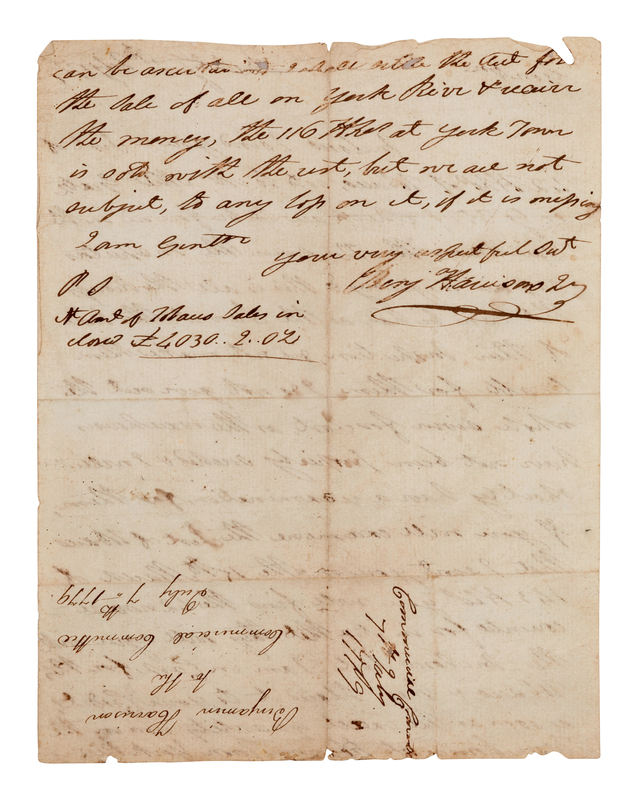 can be I shall settle the Acct for
the Sale of all on York River & receive
the money, the 116 Hhds at York Town
is sold with the rest, but we are not
subject, to any loss on it, if it is missing
I am Gentn
your very respectful Svt
Benj Harrison
P S
Nt Amt of Tobacco Sales in
closed £4030.. 2.. 02
Benjamin Harrison
to the
Commercial Committee
July 7th 1779
Commercial
7th July
1779